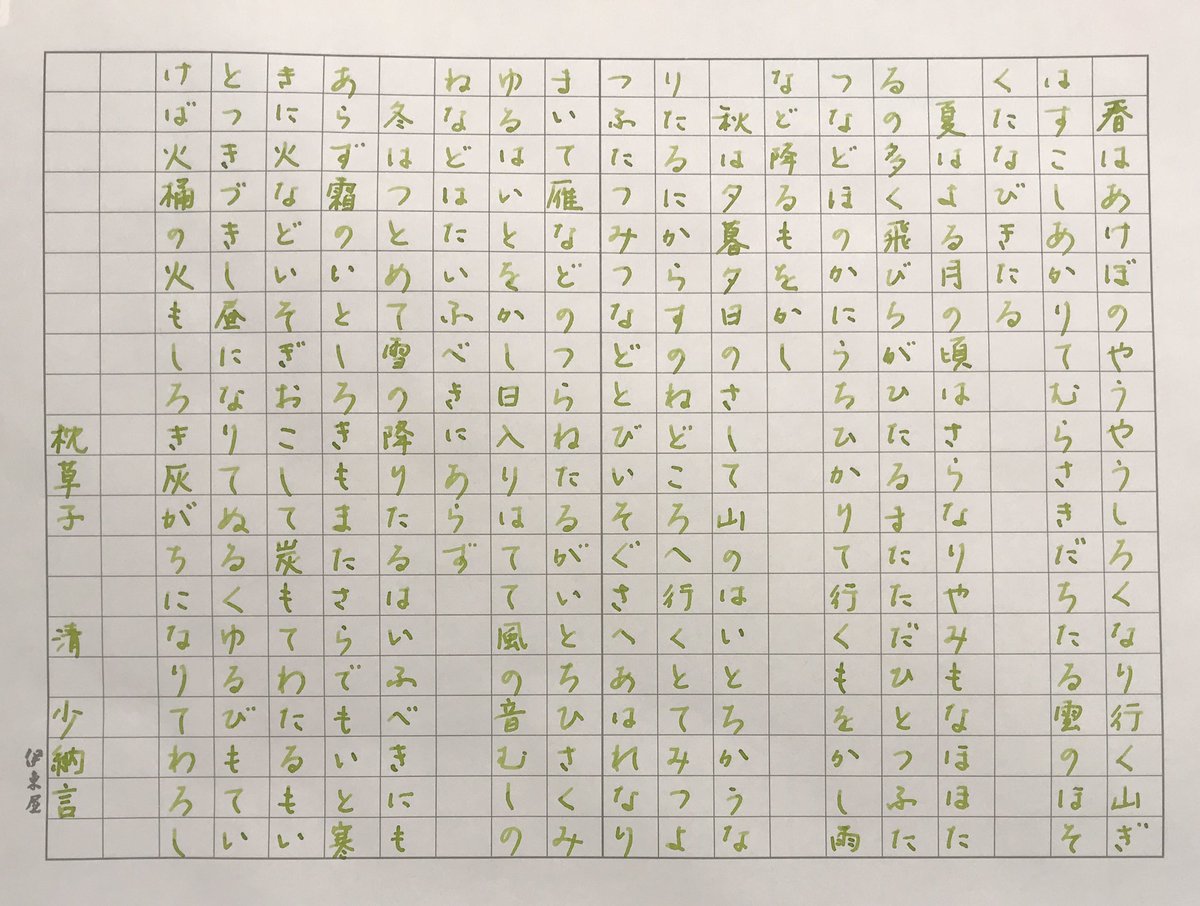 春はあけぼのやうやうしろくなり行く山ぎ
はすこしあかりてむらさきだちたる雲のほそ
くたなびきたる
夏はよる月の頃はさらなりやみもなほほた
るの多く飛びちがひたるまたただひとつふた
つなどほのかにうちひかりて行くもをかし雨
など降るもをかし
秋は夕暮夕日のさして山のはいとちかうな
りたるにからすのねどころへ行くとてみつよ
つふたつみつなどとびいそぐさへあはれなり
まいて雁などのつらねたるがいとちひさくみ
ゆるはいとをかし日入りはてて風の音むしの
ねなどはたいふべきにあらず
冬はつとめて雪の降りたるはいふべきにも
あらず霜のいとしろきもまたさらでもいと寒
きに火などいそぎおこして炭もてわたるもい
とつきづきし昼になりてぬるくゆるびもてい
けば火桶の火もしろき灰がちになりてわろし
枕草子 清 少納言
伊東屋